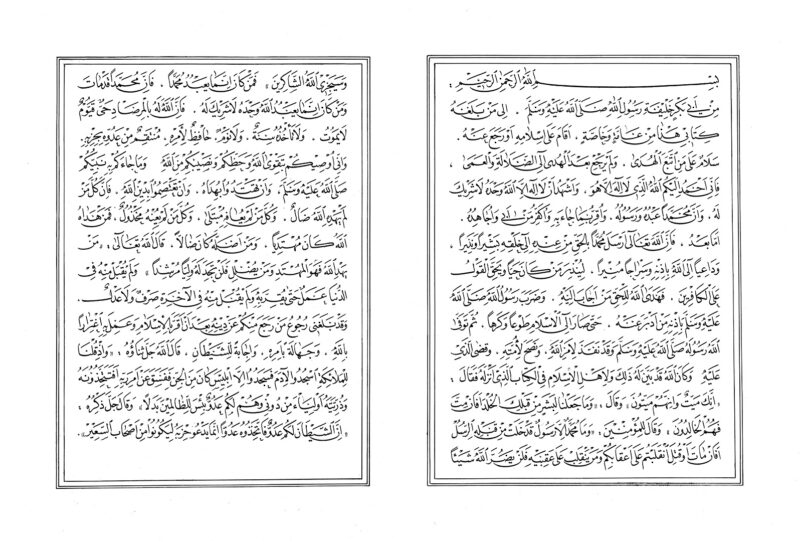 بسم الله الرحمن الرحيم :
من أبي بكر خليفة رسول الله صلى الله عليه وسلم . إلى من بلغه
كتابي هذا من عامة وخاصة . أقام على إسلامه أو رجع عنه
سلام على من اتبع الهدى . ولم يرجع بعد الهدى إلى الضلالة والعمى .
فإني أحمد إليكم الله الذي لا إله إلا هو . وأشهد أن لا إله إلا الله وحده لا شريك
له . وأن محمدا عبده ورسوله . وأقر بما جاء به وأكفر من أبى وأجاهده .
أما بعد . فإن الله تعالى أرسل محمدا بالحق من عنده إلى خلقه بشيرا ونذيرا .
وداعيا إلى الله بإذنه وسراجا منيرا . لينذر من كان حيا ويحق القول
على الكافرين . فهدى الله للحق من أجاب إليه . وضرب رسول الله صلى الله
عليه وسلم بإذنه من أدبر عنه . حتى صار إلى الإسلام طوعا وكرها . ثم توفى
الله رسوله صلى الله عليه وسلم وقد نفذ لأمر الله . ونصح لأمته . وقضى الذي
عليه وكان الله قد بين له ذلك ولأهل الإسلام في الكتاب الذي أنزله فقال :
"إنك ميت وإنهم ميتون" وقال : "وما جعلنا لبشر من قبلك الخلد أفإن مت
فهم الخالدون" . وقال للمؤمنين : "وما محمد إلا رسول قد خلت من قبله الرسل
أفإن مات أو قتل انقلبتم على أعقابكم ومن ينقلب على عقبيه فلن يضر الله شيئا
وسيجزي الله الشاكرين" فمن كان إنما يعبد محمدا . فإن محمدا قد مات
ومن كان إنما يعبد الله وحده لا شريك له . فإن الله له بالمرصاد حي قيوم
لا يموت . ولا تأخذه سنة . ولا نوم . حافظ لأمره . منتقم من عدوه يجزيه .
وإني أوصيكم بتقوى الله وحظكم ونصيبكم من الله وما جاءكم به نبيكم
صلى الله عليه وسلم . وأن تهتدوا بهداه . وأن تعتصموا بدين الله . فإن كل من
لم يهده الله ضال . وكل من لم يعافه مبتلى . وكل من لم يعنه مخذول . فمن هداه
الله كان مهتديا . ومن أضله كان ضالا . قال الله تعالى : "من
يهد الله فهو المهتد ومن يضلل فلن تجد له وليا مرشدا" ولم يقبل منه في
الدنيا عمل حتى يقر به ولم يقبل منه في الآخرة صرف ولا عدل .
وقد بلغني رجوع من رجع منكم عن دينه بعد أن أقر بالإسلام وعمل به اغترارا
بالله . وجهالة بأمره . وإجابة للشيطان . قال الله جل ثناؤه : "وإذ قلنا
للملائكة اسجدوا لآدم فسجدوا إلا إبليس كان من الجن ففسق عن أمر ربه أفتتخذونه
وذريته أولياء من دوني وهم لكم عدو بئس للظالمين بدلا" . وقال جل ذكره :
"إن الشيطان لكم عدو فاتخذوه عدوا إنما يدعو حزبه ليكونوا من أصحاب السعير" .